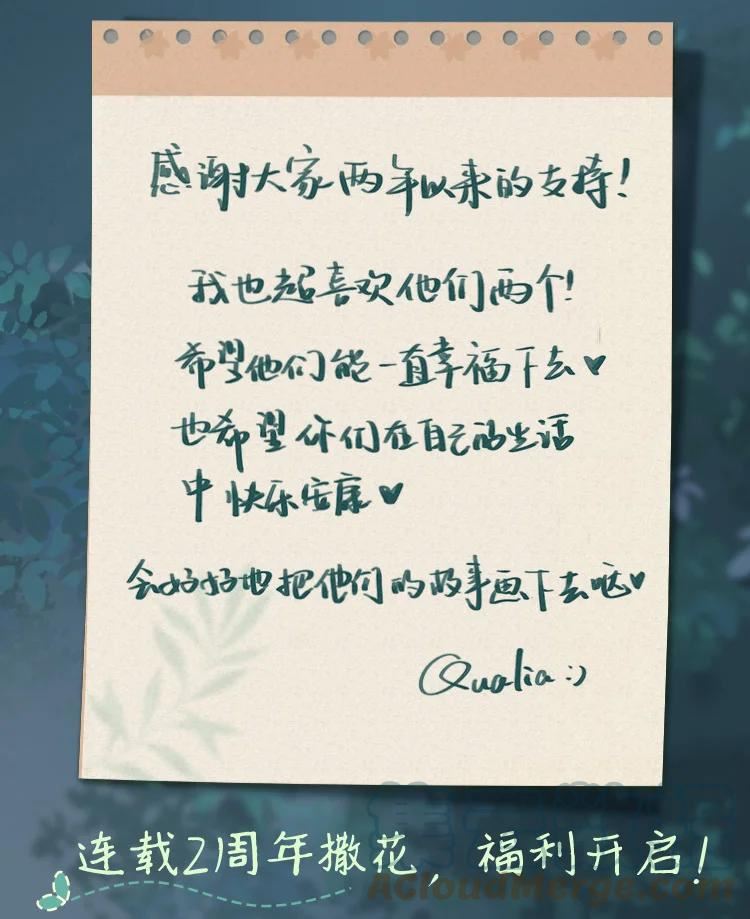 感谢大家两年以来的支持!
我也超喜欢他们两个!
希望他们能一直幸福下去♥
也希望你们在自己的生活
中快乐安康♥
会好好地把他们的故事画下去哒♥
Qualia:)
连载2周年撒花,福利开启!
ACloudMerge.com